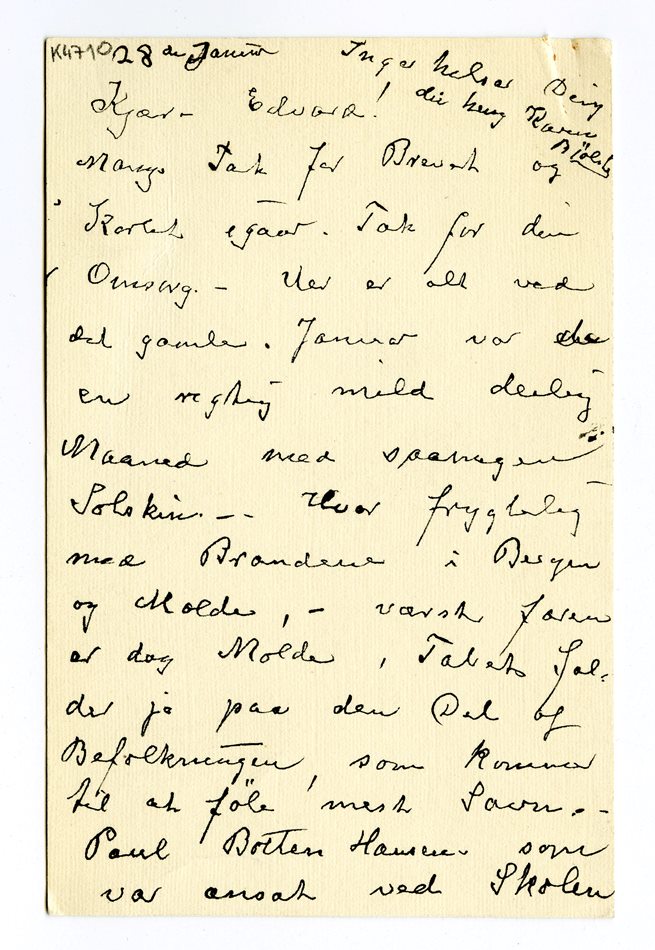 K4710
28 de Januar
Inger hilser Dig
din heng Karen
Bjölsta
Kjære Edvard!
Mange Tak for Brevet og
Kortet igaar. Tak for din
Omsorg. – Her er alt ved
det gamle. Januar var
en rigtig mild deilig
Maaned med saamegen
Solskin. – – Hvor frygtelig
med Brandene i Bergen
og Molde, – værst faren
er dog Molde, Tabets fal-
der jo paa den Del af
Befolkningen, som kommer
til at föle mest Savn. –
Paul Botten Hansen som
var ansat ved Skolen